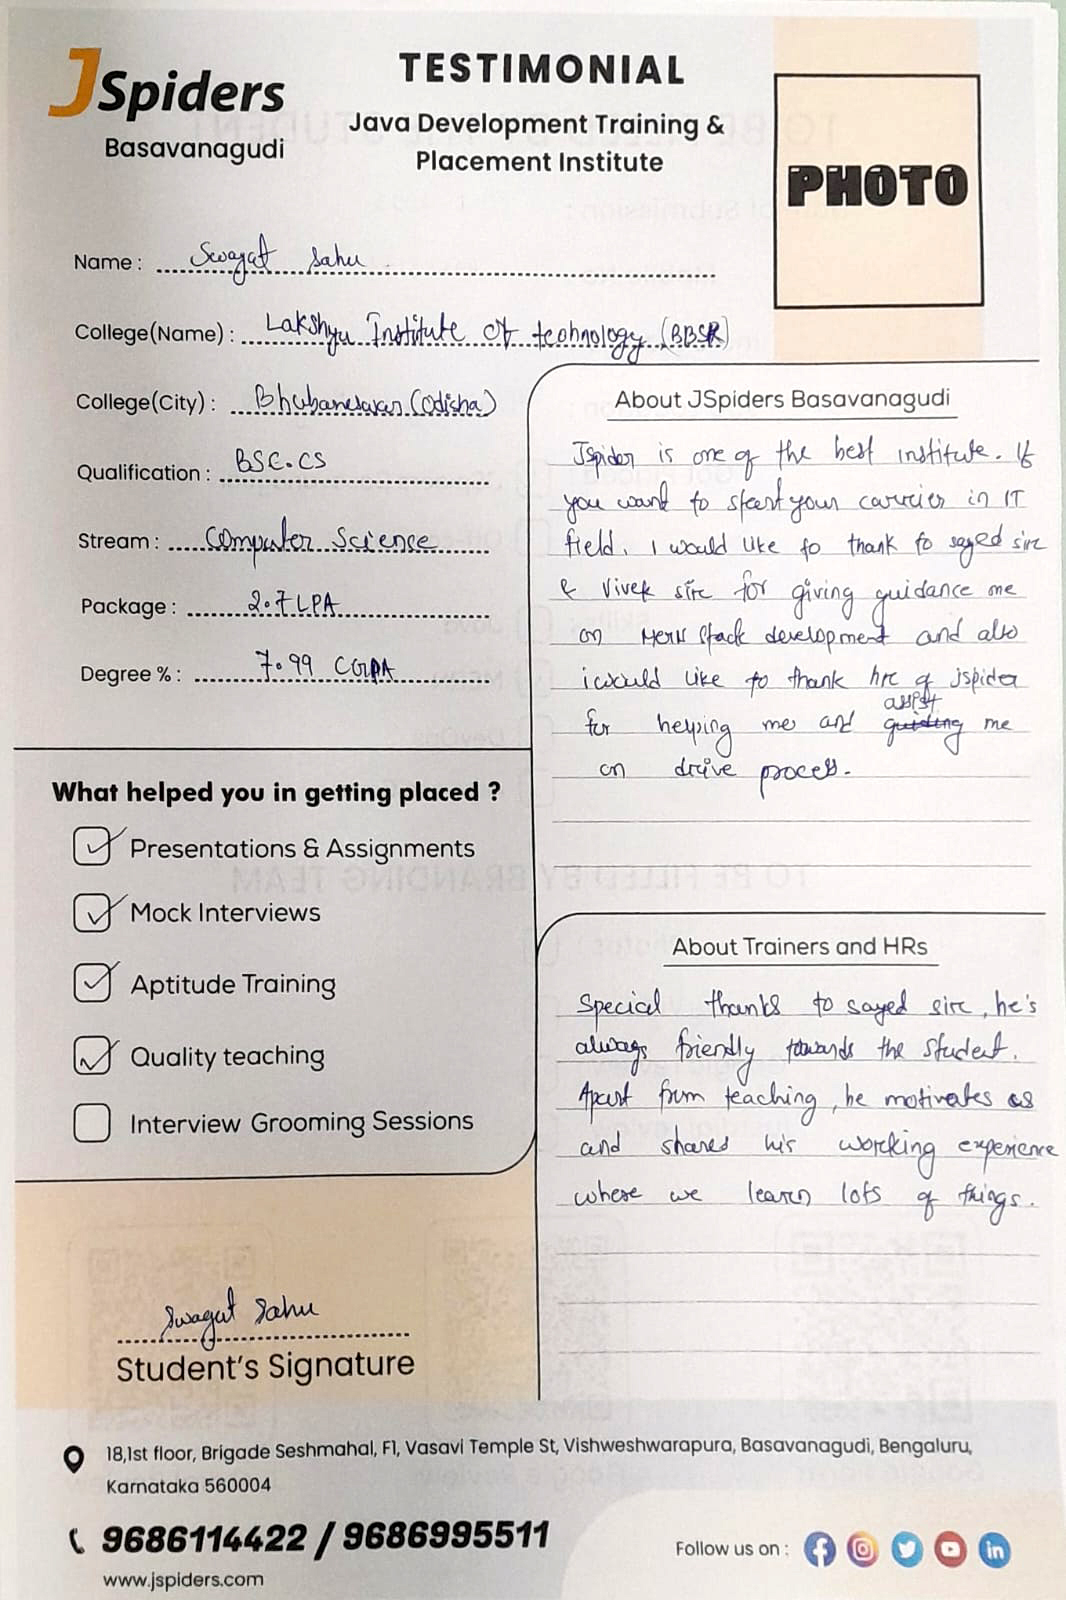 JSpiders
Basavanagudi
TESTIMONIAL
Java Development Training &
Placement Institute
PHOTO
Name : Swagat Sahu
College(Name) : Lakshya Institute Of technology (BBSR)
College(City) : Bhubaneswar (Odisha)
Qualification : BSC.CS
Stream : Computer Science
Package : 2.7 LPA
Degree % : 7.99 CGPA
What helped you in getting placed ?
Presentations & Assignments
Mock Interviews
Aptitude Training
Quality teaching
Interview Grooming Sessions
Swagat Sahu
Student's Signature
About JSpiders Basavanagudi
Jspider is one of the best institute. If
you want to start your carrier in IT
field. I would like to thank to sayed sir
& Vivek sir for giving guidance me
on Mern Stack development and also
i would like to thank hr of jspider
assist
for helping me and guiding me
on drive process.
About Trainers and HRs
Special thanks to sayed sir, he's
always friendly towards the student.
Apart from teaching, he motivates us
and shared his working experience
where we learn lots of things.
18,1st floor, Brigade Seshmahal, F1, Vasavi Temple St, Vishweshwarapura, Basavanagudi, Bengaluru,
Karnataka 560004
9686114422 / 9686995511
www.jspiders.com
Follow us on :